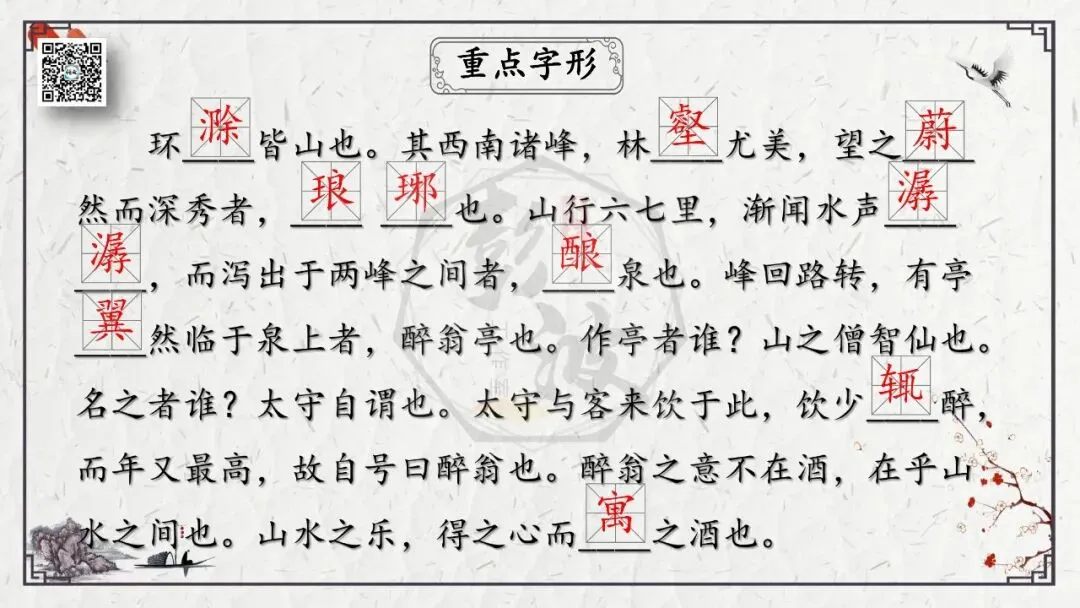 重点字形
环滁皆山也。其西南诸峰，林壑尤美，望之蔚
然而深秀者，琅琊也。山行六七里，渐闻水声潺
潺，而泻出于两峰之间者，酿泉也。峰回路转，有亭
翼然临于泉上者，醉翁亭也。作亭者谁？山之僧智仙也。
名之者谁？太守自谓也。太守与客来饮于此，饮少辄醉，
而年又最高，故自号曰醉翁也。醉翁之意不在酒，在乎山
水之间也。山水之乐，得之心而寓之酒也。